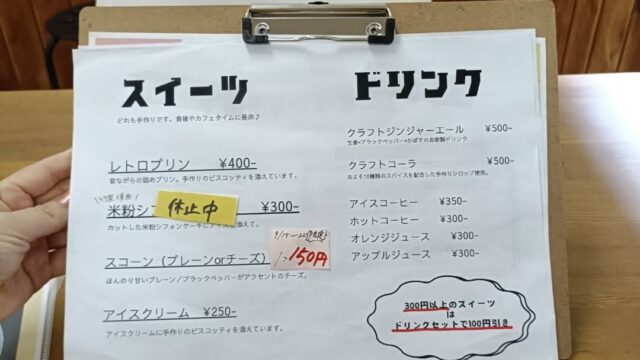 スイーツ
どれも手作りです。食後やカフェタイムに是非♪
レトロプリン ¥400-
昔ながらの固めプリン。手作りのビスコッティを添えています。
米粉シフ 休止中 ¥300-
カットした米粉シフォンケーキにアイスを添えて。
スコーン(プレーンorチーズ)
1コ150円
ほんのり甘いプレーン/ブラックペッパーがアクセントのチーズ。
アイスクリーム ¥250-
アイスクリームに手作りのビスコッティを添えています。
ドリンク
クラフトジンジャーエール ¥500-
生姜×ブラックペッパー×かぼすの自家製ドリンク
クラフトコーラ ¥500-
およそ10種類のスパイスを配合した手作りシロップ使用。
アイスコーヒー ¥350-
ホットコーヒー ¥300-
オレンジジュース ¥300-
アップルジュース ¥300-
300円以上のスイーツ
は
ドリンクセットで100円引き